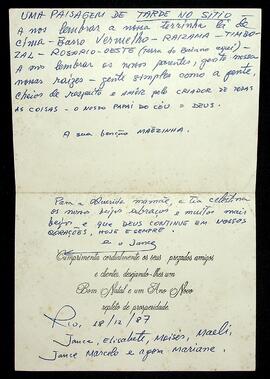 UMA PAISAGEM DE TARDE NO SÍTIO -
A nos lembrar a nossa terrinha lá de
cima - Barro Vermelho - RAIZAMA - TIMBO-
ZAL - ROSARIO-OESTE (terra do Baiano aqui) -
A nos lembrar os nossos parentes, gente nossa
nossas raizes - gente simples como a gente,
cheios de respeito e amor pelo CRIADOR DE TODAS
AS COISAS - O NOSSO PAPAI DO CÉU = DEUS.
A sua benção MÃEZINHA.
Para a Querida mamãe, a tia
os nossos beijos abraços e muitos mais
beijos e que DEUS CONTINUE EM NOSSOS
CORAÇÕES, HOJE E SEMPRE.
Cumprimenta cordialmente os seus prezados amigos
e clientes, desejando-lhes um
Bom Natal e um Ano Novo
repleto de prosperidade.
Rio, 18/12/87
Elizabete, Moisés,
Marcelo e agora Mariane.